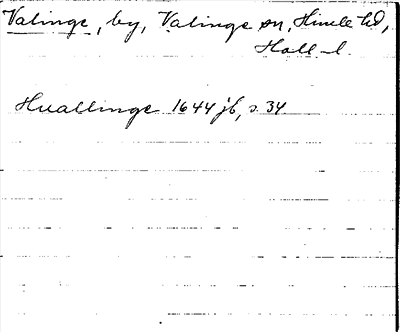 Valinge, by, Valinge sn, Himle hd,
Hall. l.
Huallinge 1644 jb, s. 34